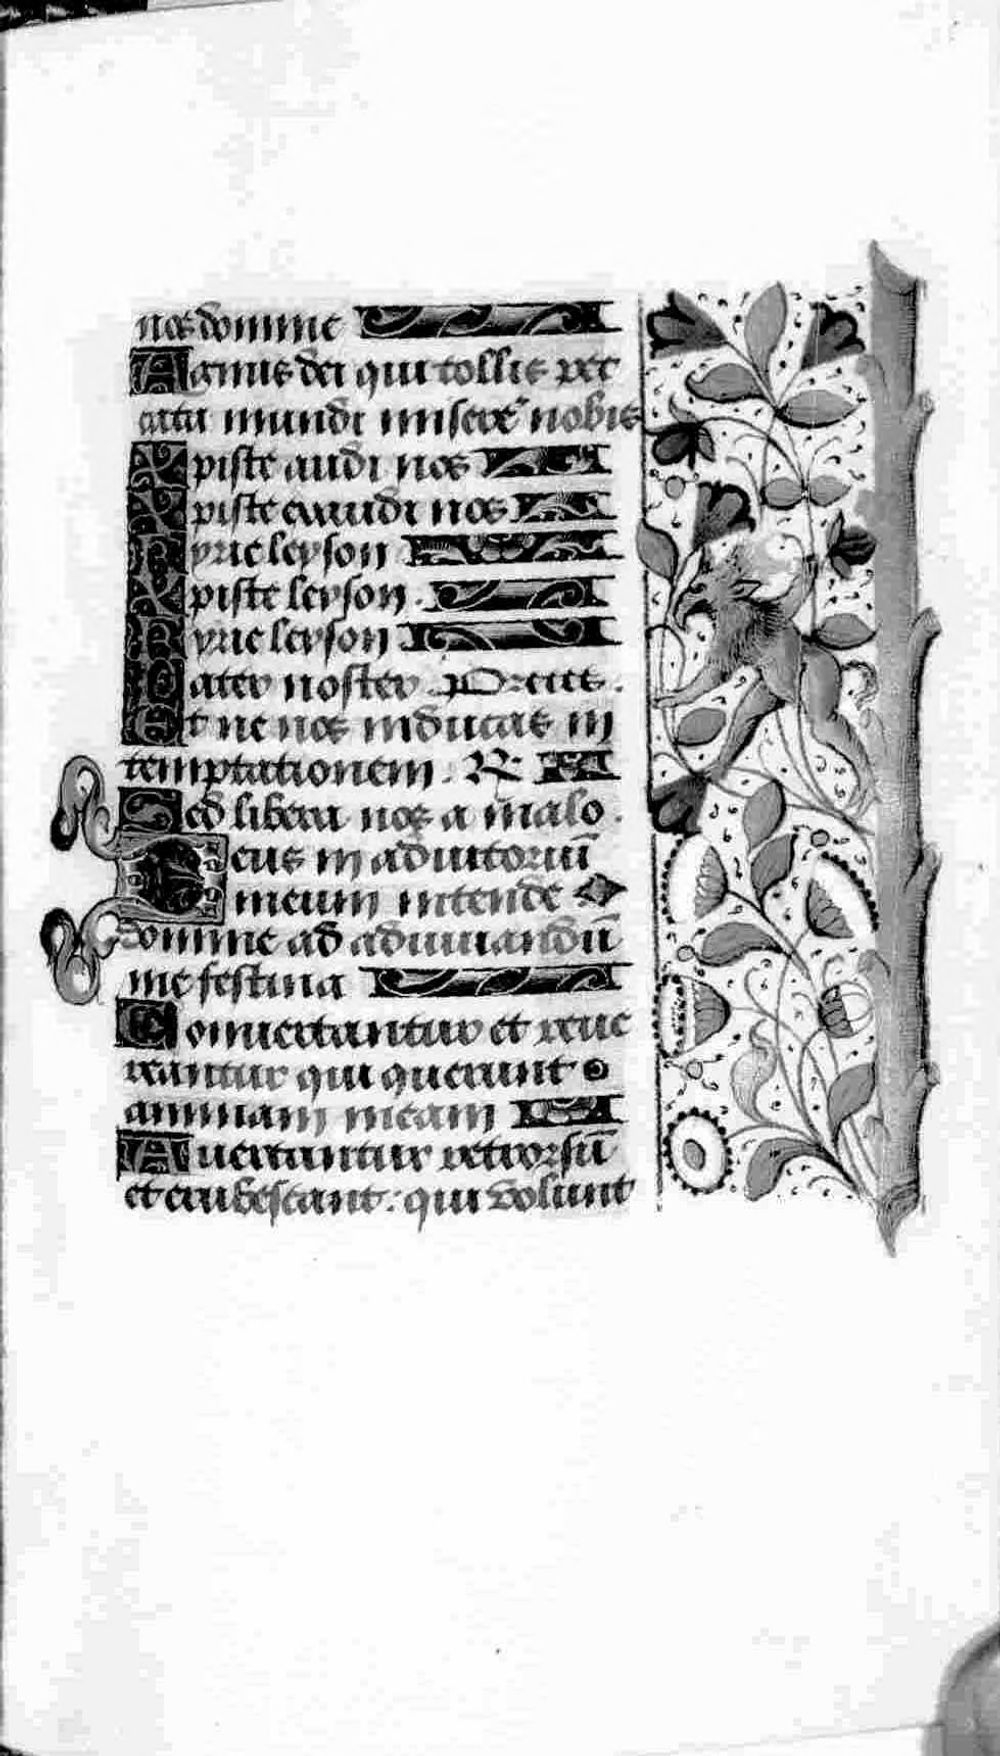 nos domine
Agnus dei qui tollis pec
cata mundi misere nobis
Xpiste audi nos
Xpiste exaudi nos
Kyrieleyson
Xpisteleyson.
Kyrieleyson
Pater noster
Et ne nos inducas in
temptationem. R
Sed libera nos a malo.
Deus in adiutoriū
meum intende
domine ad adiuuandū
me festina
Conuertantur et reue
reantur qui querunt
animam meam
Auertantur retrorsū
et erubescant: qui volunt